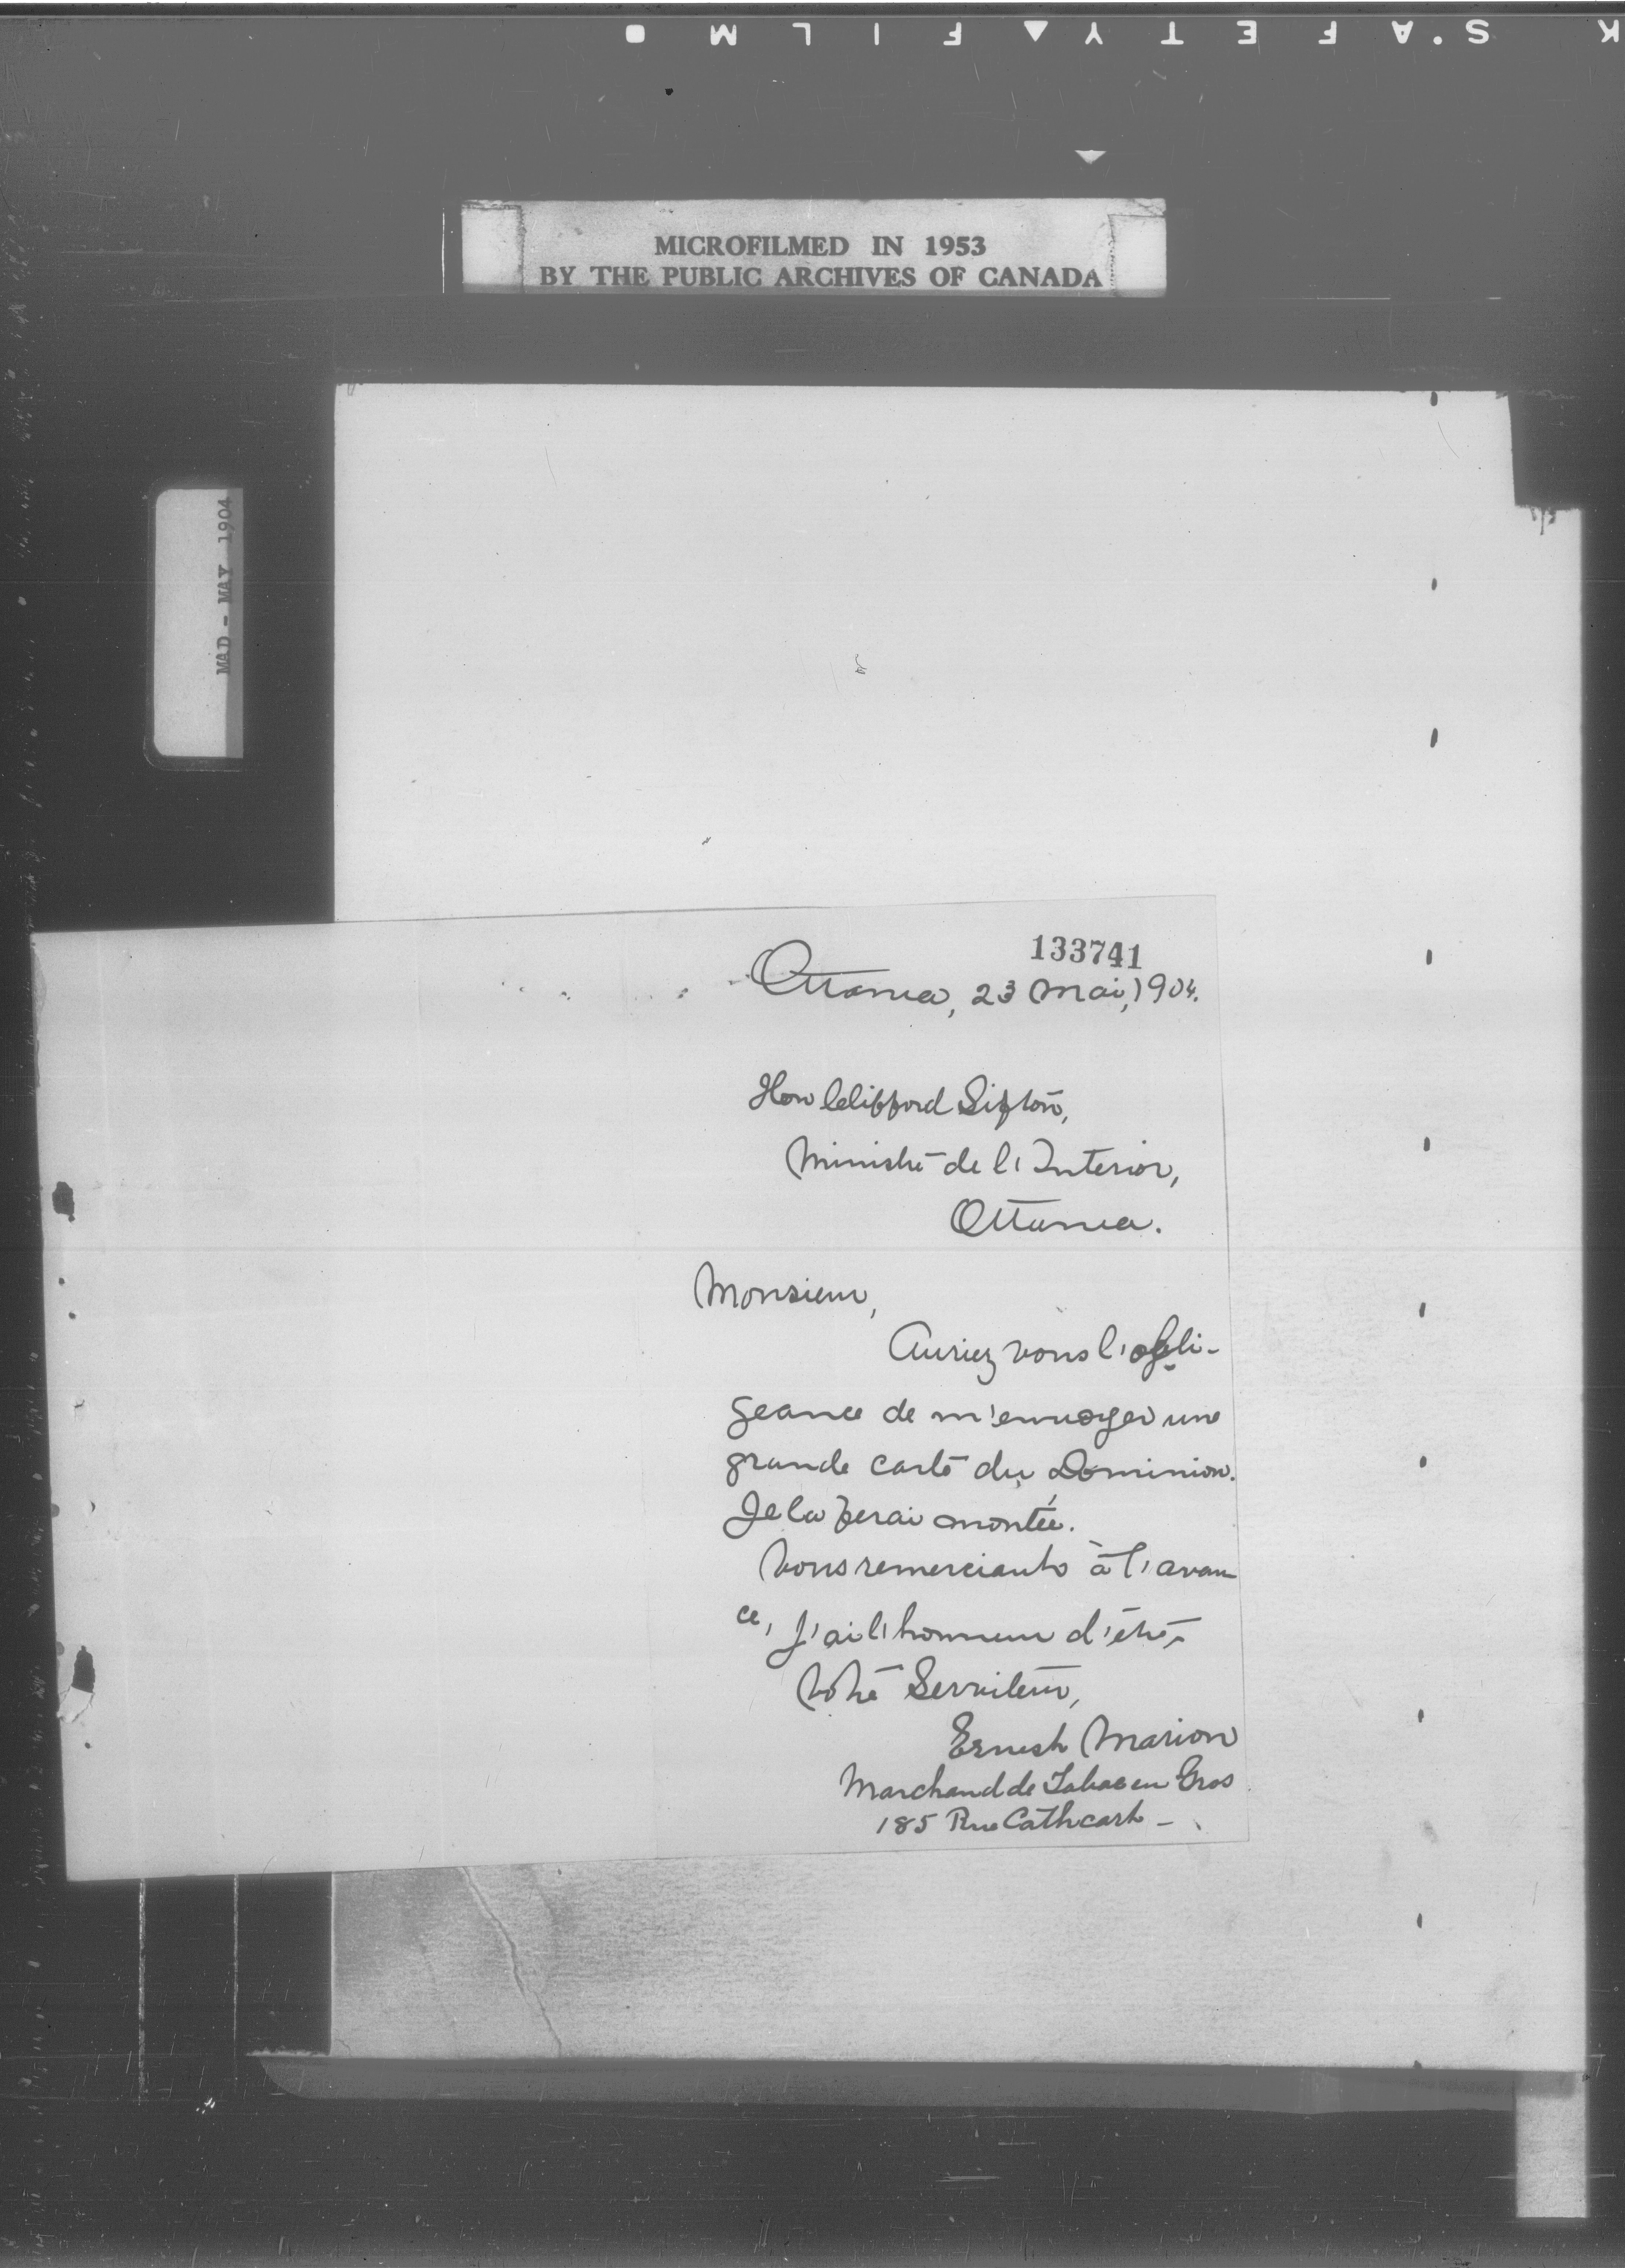 K S'AFETY▲FILM
MICROFILMED IN 1953
BY THE PUBLIC ARCHIVES OF CANADA
MAD - MAY 1904
133741
Ottawa, 23 Mai, 1904.
Hon Clifford Sifton,
Ministre de l'Interior,
Ottawa.
Monsieur,
Auriez vous l'obli-
geance de m'envoyer une
grande carte du Dominion.
Je la ferai montée.
Vous remerciant à l'avan
ce, j'ai l'honneur d'être,
Votre Serviteur,
Ernest Marion
Marchand de Tabac en Gros
185 Rue Cathcart -